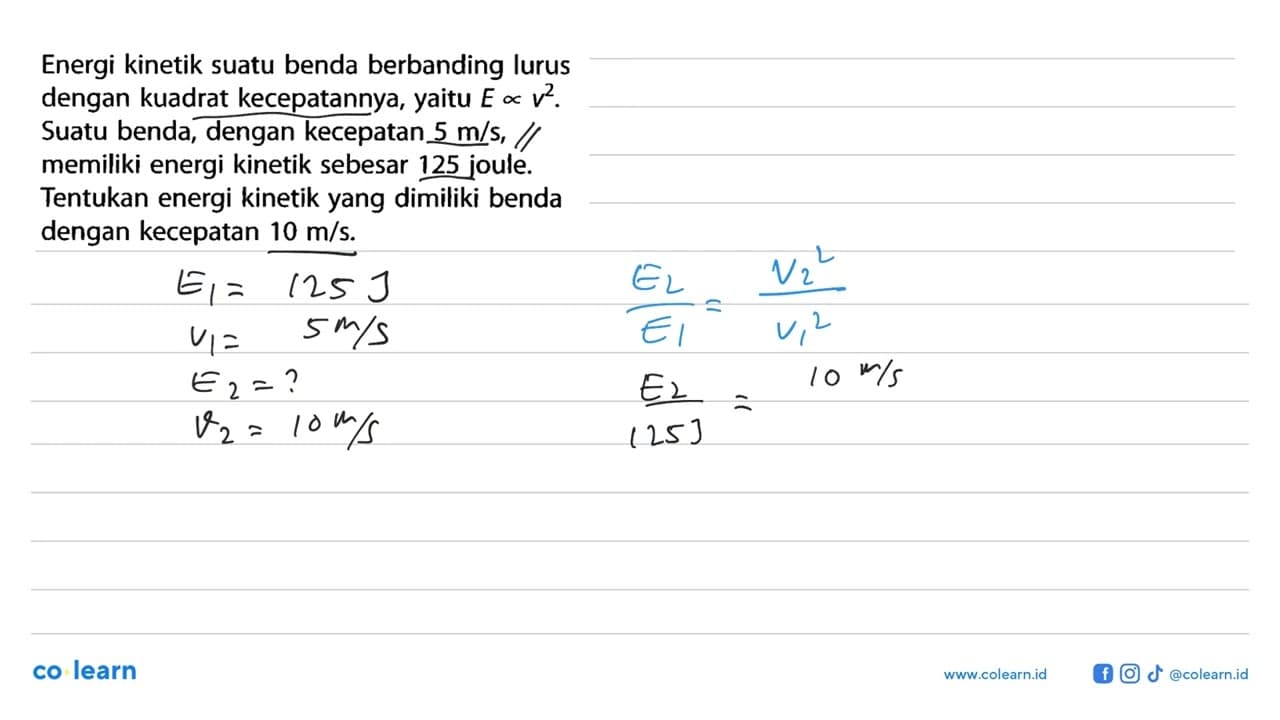 Energi kinetik suatu benda berbanding lurus
dengan kuadrat kecepatannya, yaitu E ∝ v².
Suatu benda, dengan kecepatan 5 m/s, //
memiliki energi kinetik sebesar 125 joule.
Tentukan energi kinetik yang dimiliki benda
dengan kecepatan 10 m/s.
E1 = 125 J
v1 = 5 m/s
E2 = ?
v2 = 10 m/s
E2/E1 = V2²/V1²
E2/125J = 10 m/s
co learn
www.colearn.id
@colearn.id